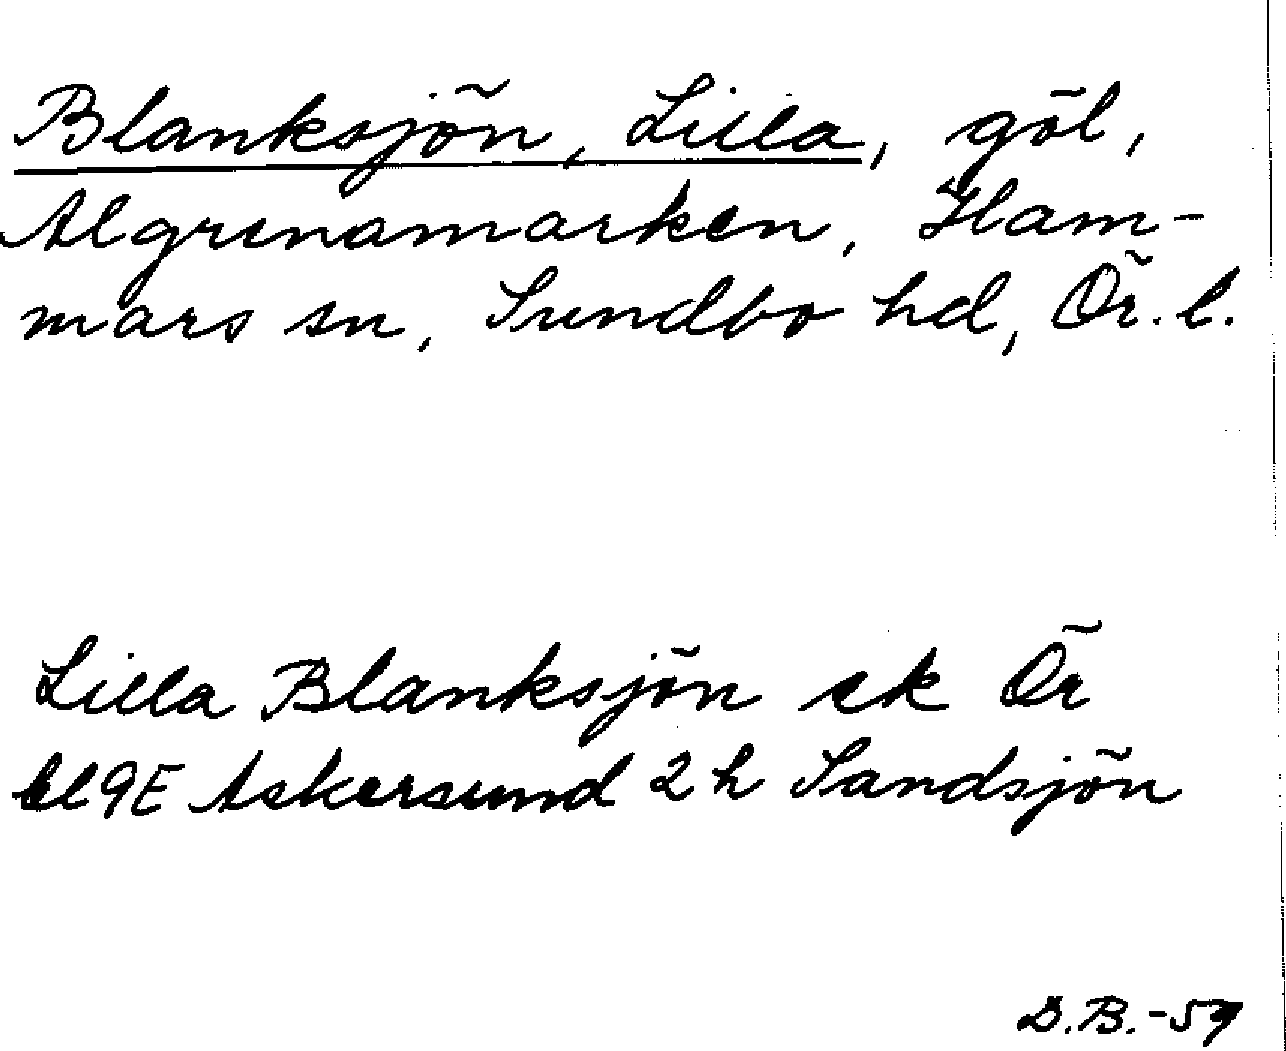 Blanksjön, Lilla, göl,
Algrenamarken, Ham-
mars sn, Sundbo hd, Ör. l.
Lilla Blanksjön ek Ör
bl 9E Askersund 2h Sandsjön
D.B.-59